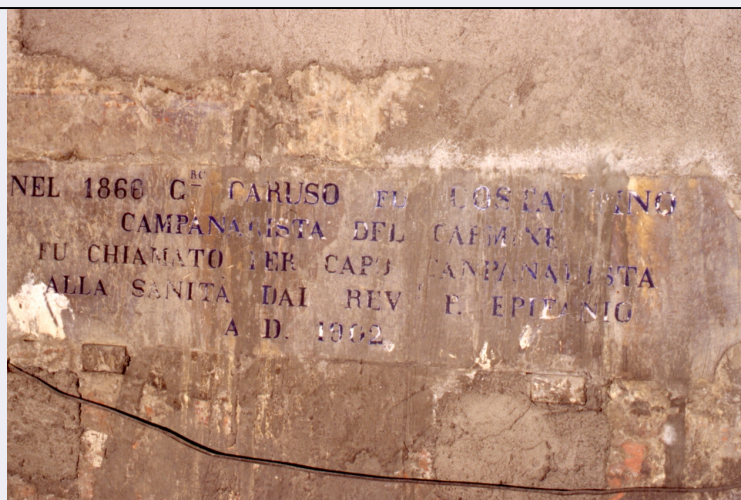 NEL 1866 G^RO CARUSO COSTANTINO
CAMPANARISTA DEL CARMINE
FU CHIAMATO PER CAPO CAMPANARISTA
ALLA SANITÀ DAI REV P. EPIFANIO
A D. 1902